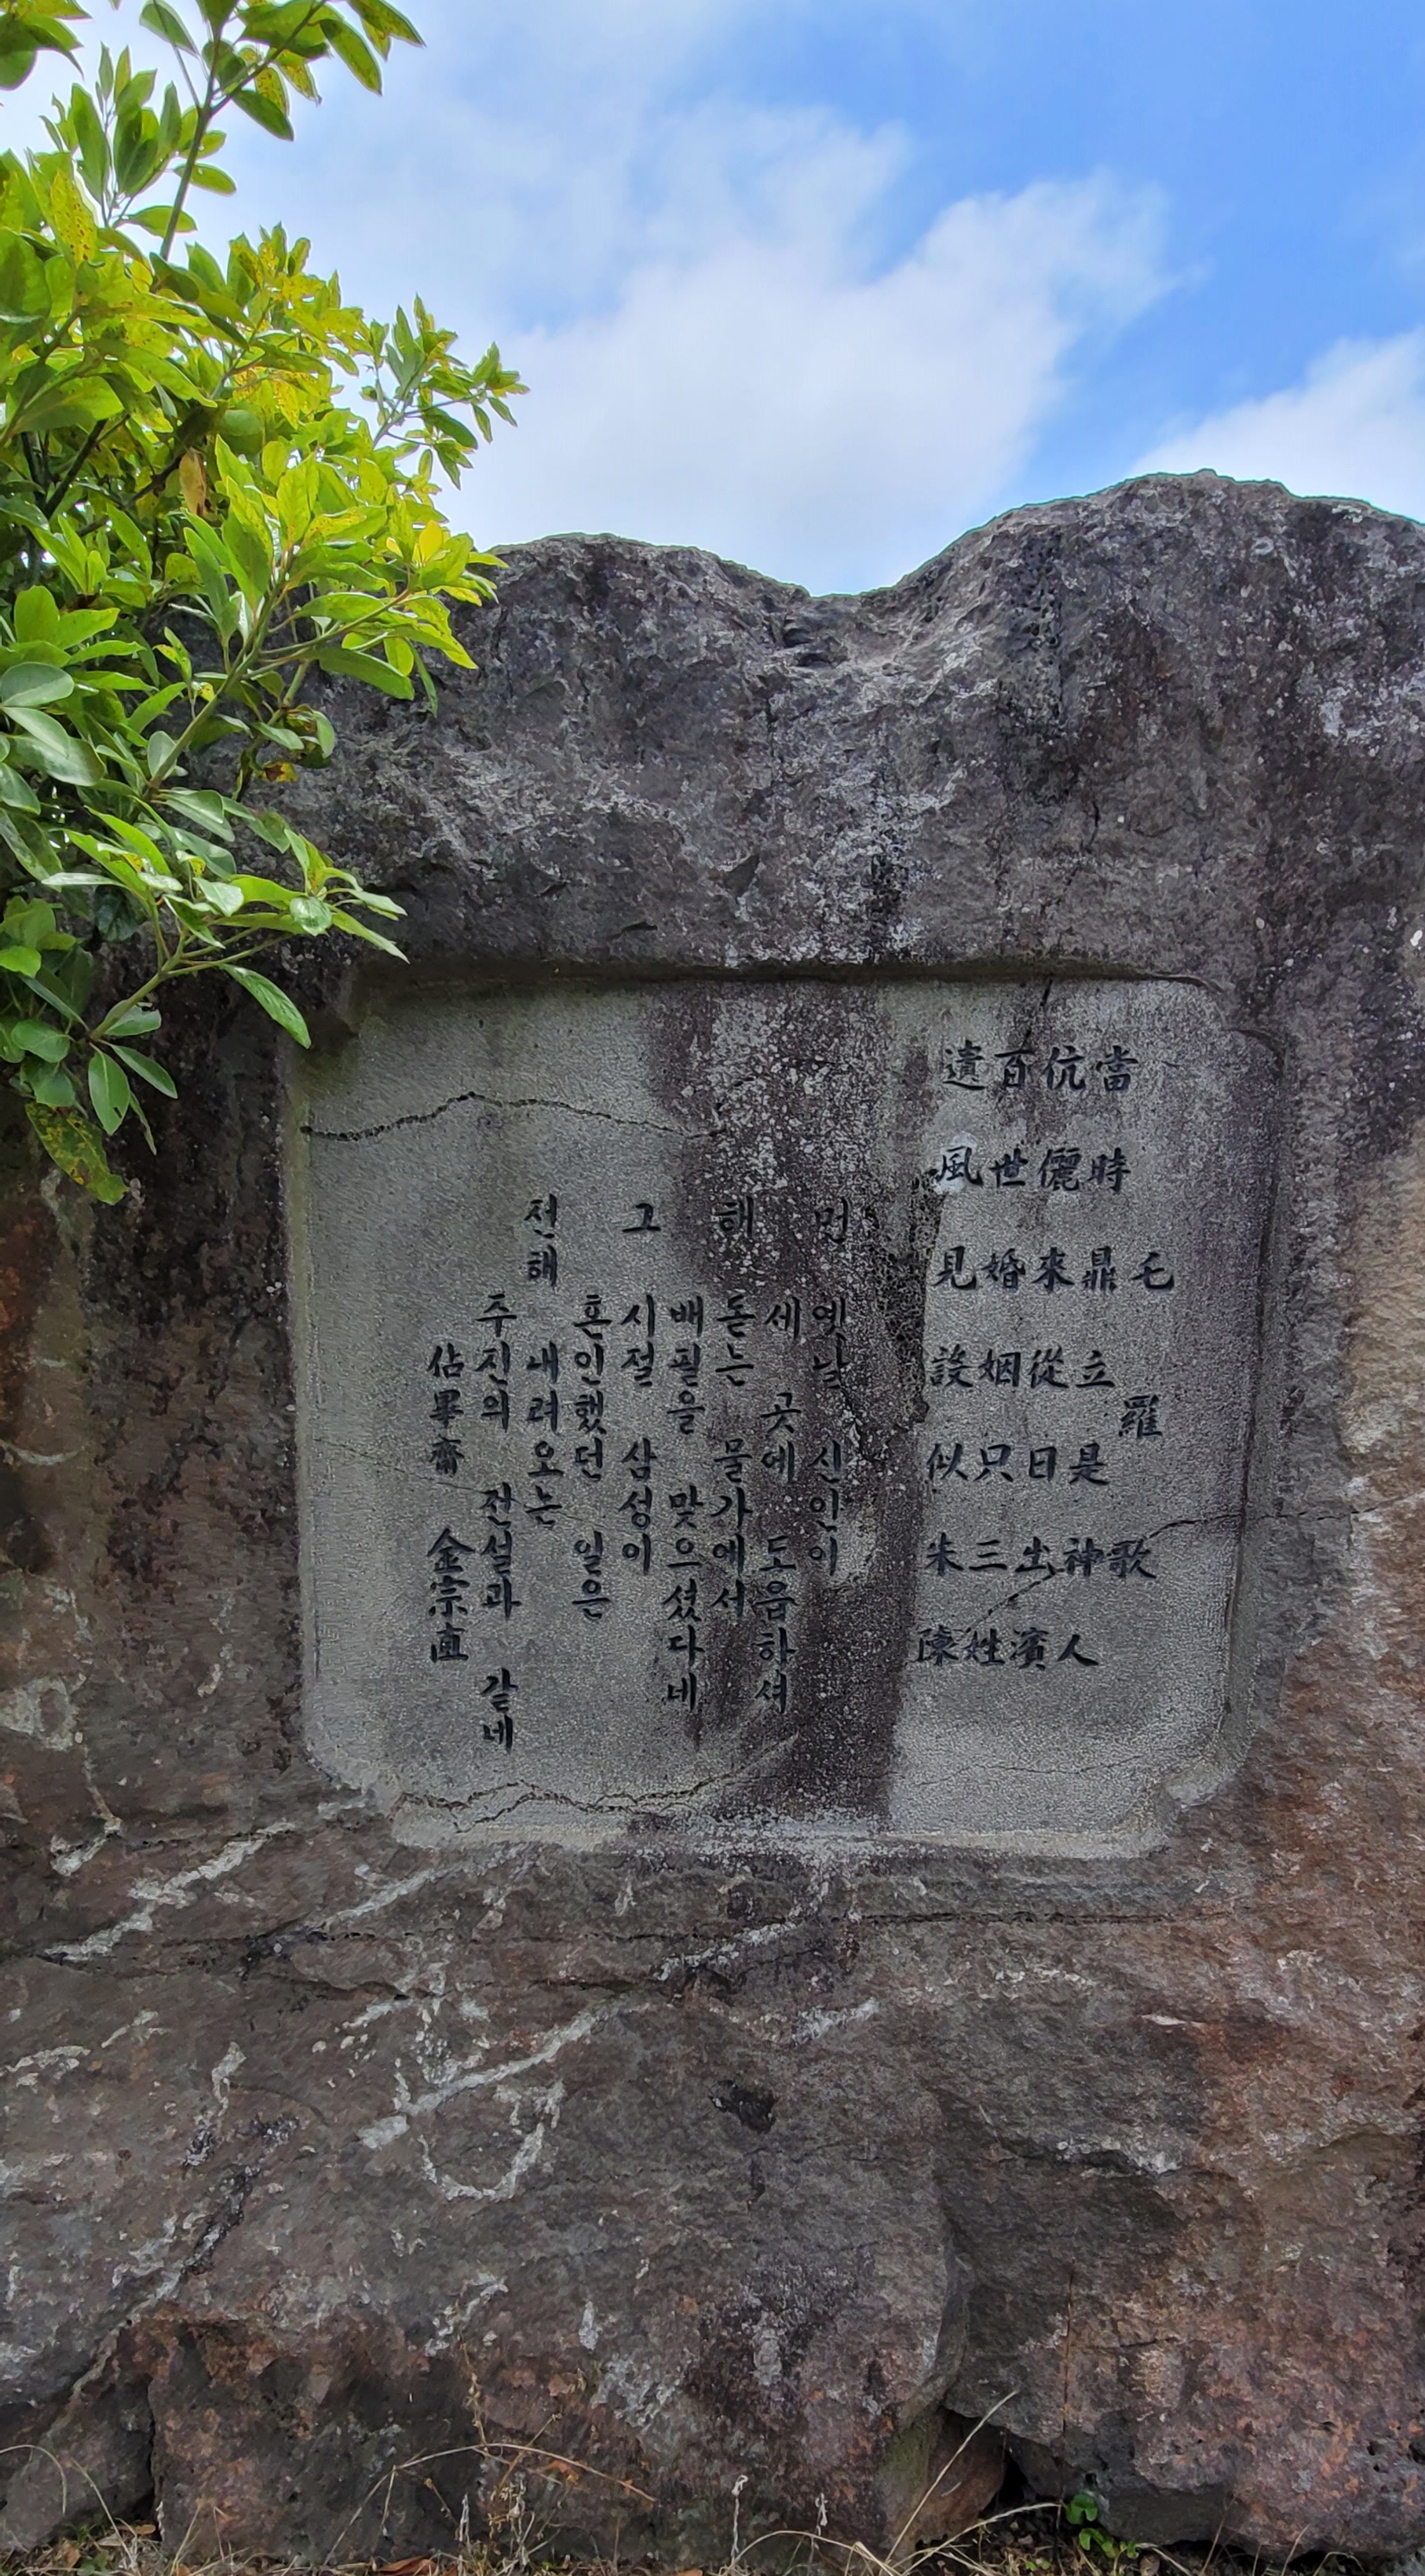 毛 羅 歌
當時鼎立是神人
伉儷來從日出濱
百世婚姻只三姓
遺風見設似朱陳
먼 옛날 신인이
세 곳에 도읍하셔
해 돋는 물가에서
배필을 맞으셨다네
그 시절 삼성이
혼인했던 일은
전해 내려오는
주진의 전설과 같네
佔畢齋 金宗直